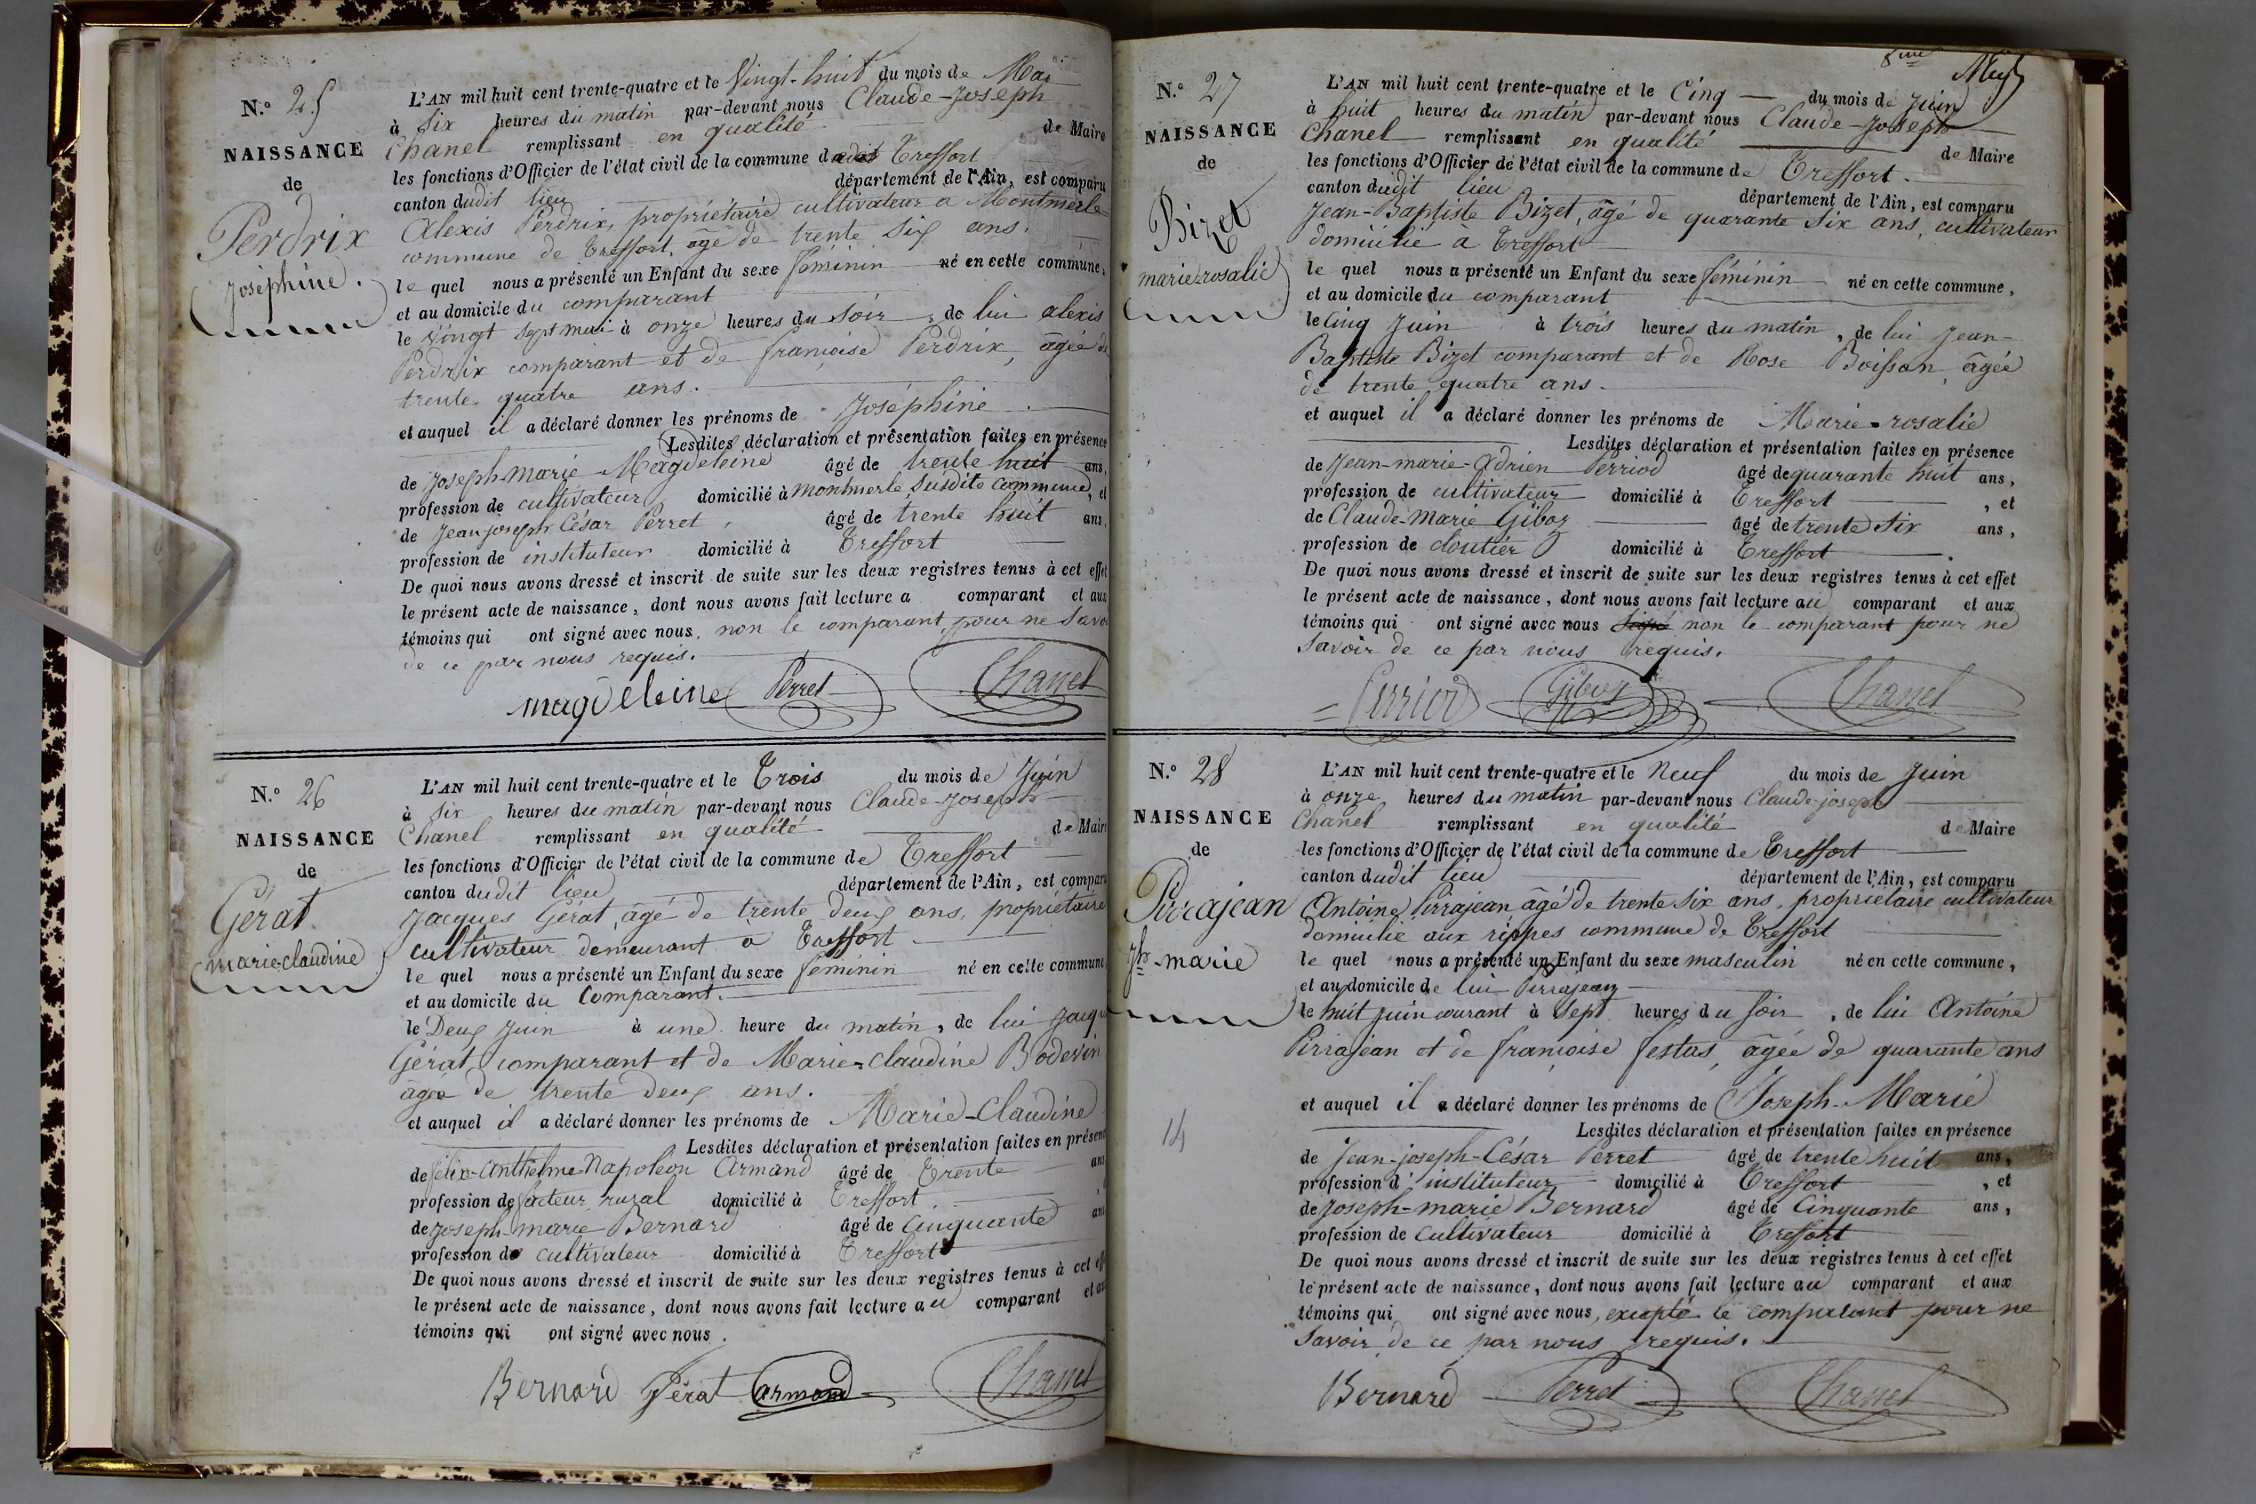 N.° 25
NAISSANCE
de
Perdrix
Joséphine.
L'AN mil huit cent trente-quatre et le Vingt-huit du mois de Mai
à Six heures du matin par-devant nous Claude-Joseph
Chanel remplissant en qualité de Maire
les fonctions d'Officier de l'état civil de la commune de Treffort
canton dudit lieu département de l'Ain, est comparu
Alexis Perdrix, propriétaire cultivateur a Montmerle
commune de Treffort, âgé de trente six ans.
le quel nous a présenté un Enfant du sexe féminin né en cette commune,
et au domicile du comparant
le Vingt sept mai à onze heures du soir, de lui alexis
Perdrix comparant et de françoise Perdrix, âgée de
trente quatre ans.
et auquel il a déclaré donner les prénoms de Joséphine.
Lesdites déclaration et présentation faites en présence
de Joseph-marie Magdeleine âgé de trente huit ans,
profession de cultivateur domicilié à montmerle, susdite commune, et
de Jean joseph César Perret, âgé de trente huit ans,
profession de instituteur domicilié à Treffort
De quoi nous avons dressé et inscrit de suite sur les deux registres tenus à cet effet
le présent acte de naissance, dont nous avons fait lecture a comparant et aux
témoins qui ont signé avec nous, non le comparant, pour ne savoi
de ce par nous requis.
magdeleine Perret Chanel
N.° 26
NAISSANCE
de
Gérat
marie-claudine
L'AN mil huit cent trente-quatre et le Trois du mois de Juin
à Six heures du matin par-devant nous Claude-Joseph
Chanel remplissant en qualité de Maire
les fonctions d'Officier de l'état civil de la commune de Treffort
canton dudit lieu département de l'Ain, est comparu
Jacques Gérat, âgé de trente deux ans, propriétaire
cultivateur demeurant a Treffort
le quel nous a présenté un Enfant du sexe féminin né en cette commune
et au domicile du Comparant.
le Deux Juin à une heure du matin, de lui Jacqu
Gérat, comparant et de Marie-claudine Bodevin
âgée de trente deux ans.
et auquel il a déclaré donner les prénoms de Marie-Claudine
Lesdites déclaration et présentation faites en présenc
de félix-anthelme-Napoléon Armand âgé de Trente ans
profession de facteur rural domicilié à Treffort
de Joseph marie Bernard âgé de Cinquante ans
profession de cultivateur domicilié à Treffort
De quoi nous avons dressé et inscrit de suite sur les deux registres tenus à cet effe
le présent acte de naissance, dont nous avons fait lecture au comparant et au
témoins qui ont signé avec nous.
Bernard Gérat armand Chanel
8me
N.° 27
NAISSANCE
de
Bizet
marie-rosalie
L'AN mil huit cent trente-quatre et le Cinq du mois de Juin
à huit heures du matin par-devant nous Claude-Joseph
Chanel remplissant en qualité de Maire
les fonctions d'Officier de l'état civil de la commune de Treffort.
canton dudit lieu département de l'Ain, est comparu
Jean-Baptiste Bizet, âgé de quarante six ans, cultivateur
domicilié à Treffort
le quel nous a présenté un Enfant du sexe féminin né en cette commune,
et au domicile du comparant
le Cinq Juin à trois heures du matin, de lui Jean-
Baptiste Bizet comparant et de Rose Boisson, âgée
de trente quatre ans.
et auquel il a déclaré donner les prénoms de Marie-rosalie
Lesdites déclaration et présentation faites en présence
de Jean-marie-Adrien Perriod âgé de quarante huit ans,
profession de cultivateur domicilié à Treffort, et
de Claude-Marie Giboz âgé de trente six ans,
profession de cloutier domicilié à Treffort.
De quoi nous avons dressé et inscrit de suite sur les deux registres tenus à cet effet
le présent acte de naissance, dont nous avons fait lecture au comparant et aux
témoins qui ont signé avec nous signé non le comparant pour ne
savoir de ce par nous requis.
Perriod Giboz Chanel
N.° 28
NAISSANCE
de
Pirrajean
Jh-marie
14
L'AN mil huit cent trente-quatre et le neuf du mois de Juin
à onze heures du matin par-devant nous Claude-joseph
Chanel remplissant en qualité de Maire
les fonctions d'Officier de l'état civil de la commune de Treffort
canton dudit lieu département de l'Ain, est comparu
Antoine Pirrajean âgé de trente six ans, propriétaire cultivateur
domicilié aux rippes commune de Treffort
le quel nous a présenté un Enfant du sexe masculin né en cette commune,
et au domicile de lui Pirrajean
le huit juin courant à Sept heures du soir, de lui Antoine
Pirrajean et de françoise festas, âgée de quarante ans
et auquel il a déclaré donner les prénoms de Joseph-Marie
Lesdites déclaration et présentation faites en présence
de Jean-joseph-César Perret âgé de trente huit ans,
profession d'instituteur domicilié à Treffort, et
de Joseph-marie Bernard âgé de Cinquante ans,
profession de Cultivateur domicilié à Treffort
De quoi nous avons dressé et inscrit de suite sur les deux registres tenus à cet effet
le présent acte de naissance, dont nous avons fait lecture au comparant et aux
témoins qui ont signé avec nous, excepté le comparant pour ne
savoir de ce par nous requis.
Bernard Perret Chanel